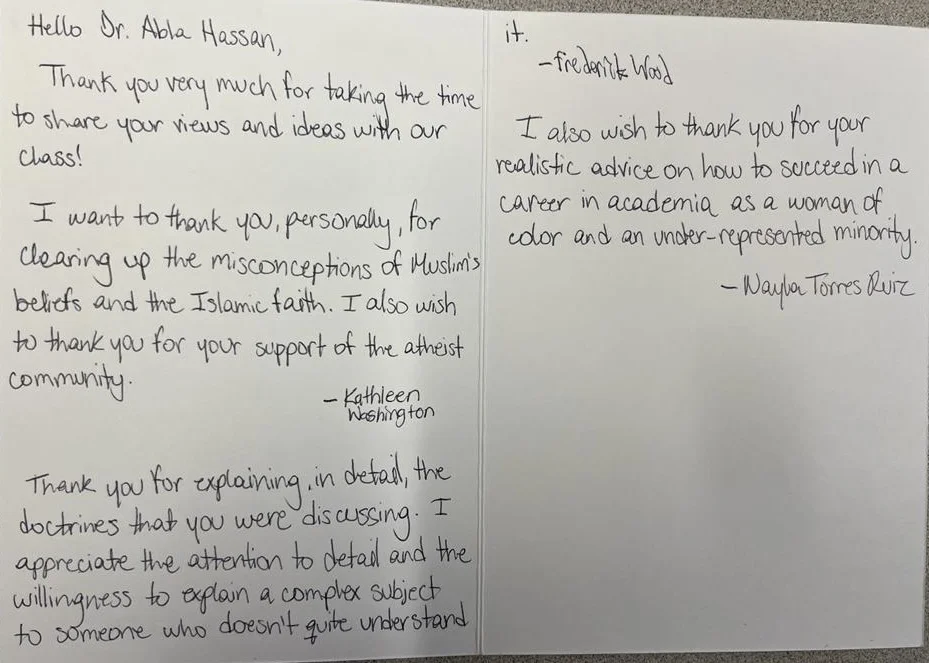 Hello Dr. Abla Hassan,
Thank you very much for taking the time
to share your views and ideas with our
class!
I want to thank you, personally, for
clearing up the misconceptions of Muslim's
beliefs and the Islamic faith. I also wish
to thank you for your support of the atheist
community.
- Kathleen
Washington
Thank you for explaining, in detail, the
doctrines that you were discussing. I
appreciate the attention to detail and the
willingness to explain a complex subject
to someone who doesn't quite understand
it.
- Frederick Wood
I also wish to thank you for your
realistic advice on how to succeed in a
career in academia as a woman of
color and an under-represented minority.
- Nayba Torres Ruiz